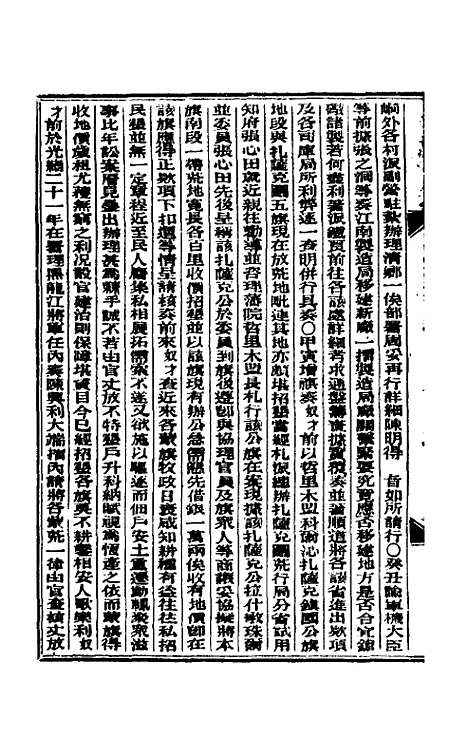 峒外各村派副營駐紮辦理清鄉一俟部署周妥再行詳細陳明得　旨如所請行〇癸丑諭軍機大臣
等前據張之洞等奏江南製造局移建新廠一摺製造局廠關繫緊要究竟應否移建地方是否合宜鎔
礮諸製若何盡利著派鐵良前往各該處詳細考求通盤籌畫據實覆奏並著順道將各該省進出款項
及各司庫局所利弊逐一查明併行具奏〇甲寅增祺奏奴才前以哲里木盟科爾沁扎薩克鎮國公旗
地段與扎薩克圖五旗現在放荒地毗連其地亦頗堪招墾當經札派總辦扎薩克圖荒行局分省試用
知府張心田就近親往勸導並咨理藩院哲里木盟長札行該公旗在案現據該扎薩克公拉什敏珠爾
並委員張心田先後呈稱該扎薩克公於委員到旗後遵即與協理官員及旗眾人等商議妥協擬將本
旗南段一帶荒地寬長各百里收價招墾並以該旗現有辦公急需懇先借銀一萬兩俟收有地價即在
該旗應得正款項下扣還等情呈請核奏前來奴才查近來各蒙旗牧政日衰咸知耕種有益往往私招
民墾並無一定章程近至民人麕集私相展拓需索不遂又欲施以驅逐而佃戶安土重遷動輒聚眾滋
事比年訟案層見疊出辦理甚為棘手誠不若由官丈放不特墾戶升科納賦視為恆產之依而蒙旗得
收地價歲租尤獲無窮之利況設官建治則保障堪資目今已經招墾各旗莫不耕鑿相安人歌樂利奴
才前於光緒二十一年在署理黑龍江將軍任內奏陳興利大端摺內請將各蒙荒一律由官查核丈放